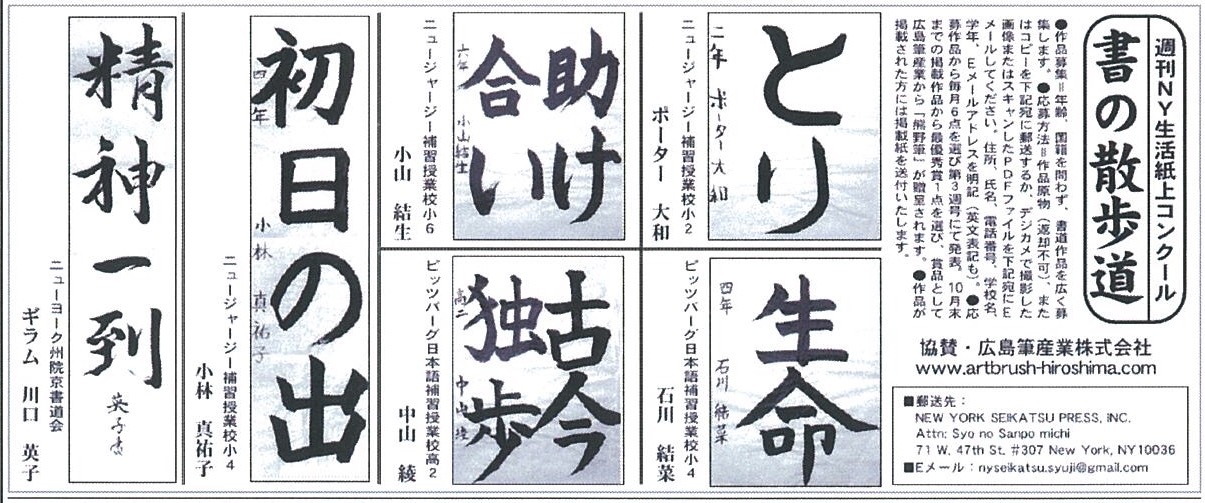 週刊NY生活紙上コンクール
書の散歩道
●作品募集＝年齢、国籍を問わず、書道作品を広く募
集します。●応募方法＝作品原物（返却不可）、また
はコピーを下記宛に郵送するか、デジカメで撮影した
画像またはスキャンしたPDFファイルを下記宛にE
メールしてください。住所、氏名、電話番号、学校名、
学年、Eメールアドレスを明記（英文表記も）。●応
募作品から毎月6点を選び第3週号にて発表。10月末
までの掲載作品から最優秀賞1点を選び、賞品として
広島筆産業から「熊野筆」が贈呈されます。●作品が
掲載された方には掲載紙を送付いたします。
協賛・広島筆産業株式会社
www.artbrush-hiroshima.com
■郵送先：
NEW YORK SEIKATSU PRESS, INC.
Attn: Syo no Sanpo michi
71 W. 47th St. #307 New York, NY10036
■Eメール：nyseikatsu.syuji@gmail.com
とり
二年 ポーター大和
ニュージャージー補習授業校小2
ポーター 大和
生命
四年 石川 結菜
ピッツバーグ日本語補習授業校小4
石川 結菜
助け
合い
六年 小山結生
ニュージャージー補習授業校小6
小山 結生
古今
独歩
高二 中山 綾
ピッツバーグ日本語補習授業校高2
中山 綾
初日の出
四年 小林 真祐子
ニュージャージー補習授業校小4
小林 真祐子
精神一到
英子書
ニューヨーク州院京書道会
ギラム 川口 英子